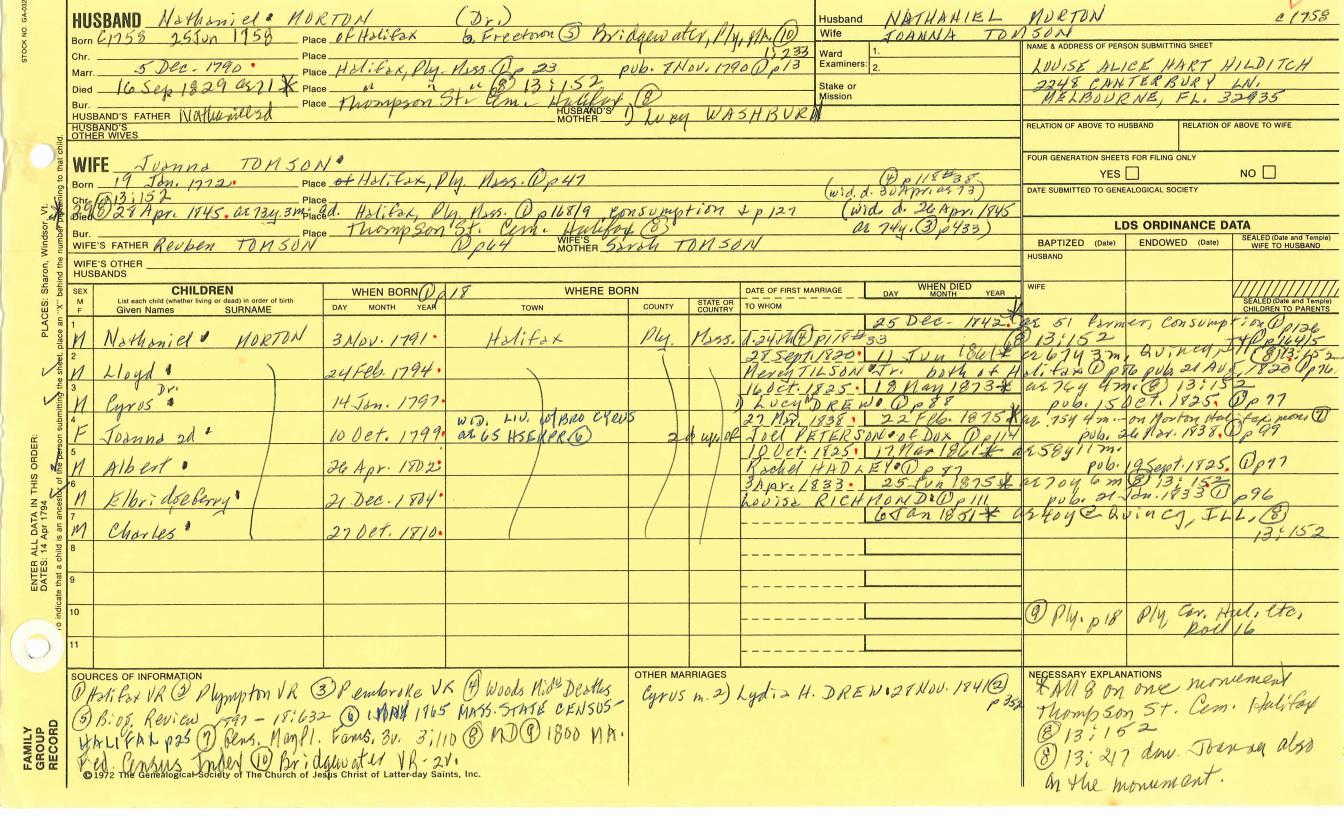 HUSBAND Nathaniel MORTON (Dr.)
Born c1758 25 Jun 1758 Place of Halifax b. Freetown (5) Bridgewater, Ply, Ma. (10)
Chr. Place 1:233
Marr. 5 Dec. 1790 Place Halifax, Ply. Mass. (1) p 23 pub. 7 Nov. 1790 (1) p 13
Died 16 Sep 1829 ae 71 * Place " " " (8) 13:152
Bur. Place Thompson St. Cem. Halifax (8)
HUSBAND'S FATHER Nathaniel 2d HUSBAND'S MOTHER 1) Lucy WASHBURN
HUSBAND'S OTHER WIVES
Husband NATHANIEL MORTON c1758
Wife JOANNA TOMSON
Ward Examiners: 1.
2.
Stake or Mission
NAME & ADDRESS OF PERSON SUBMITTING SHEET
LOUISE ALICE HART HILDITCH
2248 CANTERBURY LN.
MELBOURNE, FL. 32935
RELATION OF ABOVE TO HUSBAND RELATION OF ABOVE TO WIFE
FOUR GENERATION SHEETS FOR FILING ONLY
YES NO
DATE SUBMITTED TO GENEALOGICAL SOCIETY
WIFE Joanna TOMSON
Born 19 Jan. 1772 Place of Halifax, Ply. Mass. (1) p 47
Chr. 13:152 (4) p 118 #38
(wid. d. 30 Apr. ae 73)
Died 28 Apr. 1845 ae 73y. 3m. Place d. Halifax, Ply, Mass. (1) p 168/9 consumption & p 127 (wid. d. 26 Apr. 1845
Bur. Place Thompson St. Cem. Halifax (8) ae 74y. (3) p 433)
WIFE'S FATHER Reuben TOMSON (1) p 64 WIFE'S MOTHER Sarah TOMSON
WIFE'S OTHER HUSBANDS
LDS ORDINANCE DATA
BAPTIZED (Date) ENDOWED (Date) SEALED (Date and Temple) WIFE TO HUSBAND
HUSBAND
WIFE
SEALED (Date and Temple) CHILDREN TO PARENTS
SEX M F CHILDREN List each child (whether living or dead) in order of birth Given Names SURNAME
WHEN BORN (1) p 18 DAY MONTH YEAR
WHERE BORN TOWN COUNTY STATE OR COUNTRY
DATE OF FIRST MARRIAGE TO WHOM
WHEN DIED DAY MONTH YEAR
1 25 Dec. 1842 * ae 51 farmer, Consumption (1) p 126
M Nathaniel MORTON 3 Nov. 1791 Halifax Ply. Mass. (4) p 118 #33 (8) 13:152 p 164/5
2 28 Sept. 1820 11 Jun 1861 * ae 67y 3m, Quincy, (8) 13:152
M Lloyd 24 Feb. 1794 Mercy TILSON Jr. both of Halifax (1) p 86 pub. 21 Aug. 1820 (1) p 76
3 16 Oct. 1825 18 May 1873 * ae 76y 4m. (8) 13:152
M Cyrus Dr. 14 Jan. 1797 1) Lucy DREW (1) p 88 pub. 15 Oct. 1825 (1) p 77
4 27 Mar. 1838 22 Feb. 1875 * ae 75y 4m. on Morton Halifax mon. (7)
F Joanna 2d 10 Oct. 1799 wid. LIV. w/BRO CYRUS ae 65 HSEKPR (6) 2d wife of Joel PETERSON of Dux (1) p 114 pub. 26 Mar. 1838 (1) p 99
5 10 Oct. 1825 17 Mar 1861 * ae 58y 11m.
M Albert 26 Apr. 1802 Rachel HADLEY (1) p 87 pub. 19 Sept. 1825 (1) p 77
6 3 Apr. 1833 25 Jun 1875 * ae 70y 6m (8) 13:152
M Elbridge Gerry 21 Dec. 1804 Louisa RICHMOND (1) p 111 pub. 21 Jan. 1833 (1) p 96
7 6 Jan 1851 * ae 40y @ Quincy, ILL, (8) 13:152
M Charles 27 Oct. 1810
8
9
10 (9) Ply. p 18 Ply, Car. Hal, etc, Roll 16
11
SOURCES OF INFORMATION
(1) Halifax VR (2) Plympton VR (3) Pembroke VR (4) Woods Deaths
(5) Biog. Review 1797 - 18:632 (6) 1 MAY 1865 MASS. STATE CENSUS-
HALIFAX p25 (7) Gens. Mayfl. Fams. 3v. 3:110 (8) MD (9) 1800 MA.
Fed. Census Index (10) Bridgewater VR - 2v.
©1972 The Genealogical Society of The Church of Jesus Christ of Latter-day Saints, Inc.
OTHER MARRIAGES
Cyrus m. 2) Lydia H. DREW 27 Nov. 1841 (2) p 352
NECESSARY EXPLANATIONS
*All 8 on one monument
Thompson St. Cem. Halifax
(8) 13:152
(8) 13:217 dau. Joanna also
on the monument.
FAMILY GROUP RECORD
ENTER ALL DATA IN THIS ORDER:
DATES: 14 Apr 1794
PLACES: Sharon, Windsor, Vt.
To indicate that a child is an ancestor of the person submitting the sheet, place an "X" behind the number pertaining to that child.